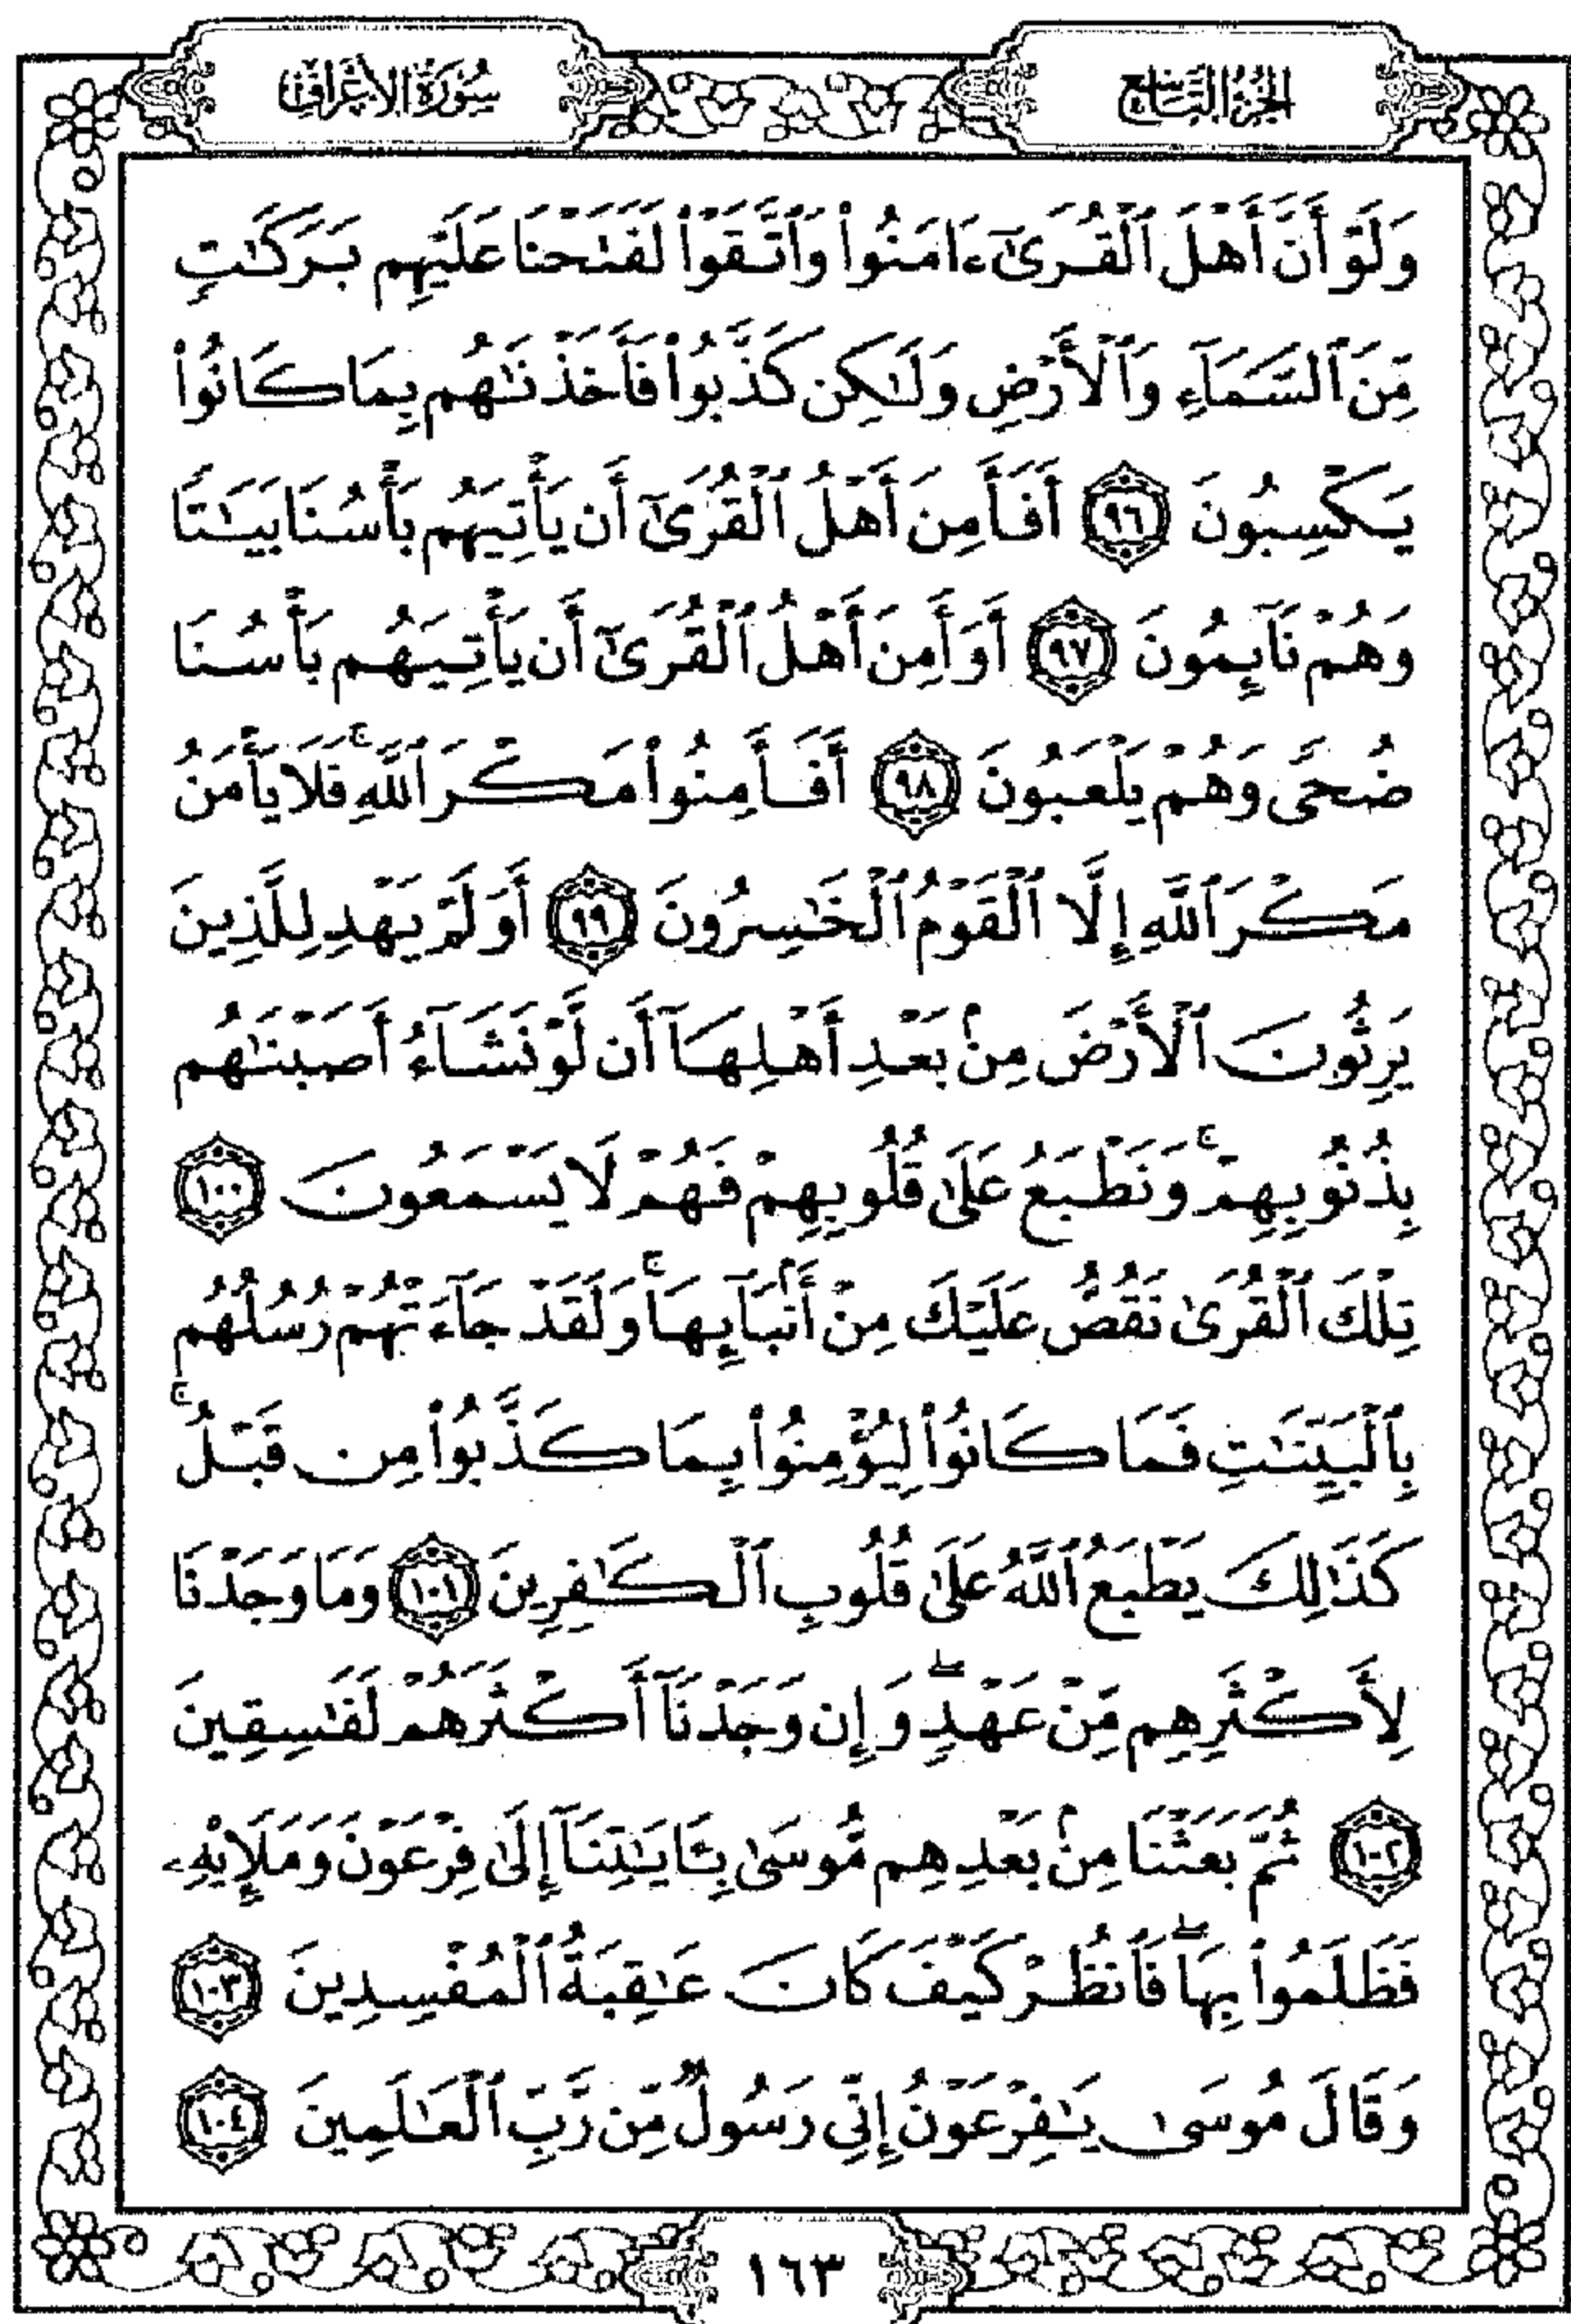 الجزء التاسع
سورة الأعراف
وَلَوْ أَنَّ أَهْلَ ٱلْقُرَىٰٓ ءَامَنُوا۟ وَٱتَّقَوْا۟ لَفَتَحْنَا عَلَيْهِم بَرَكَـٰتٍ
مِّنَ ٱلسَّمَآءِ وَٱلْأَرْضِ وَلَـٰكِن كَذَّبُوا۟ فَأَخَذْنَـٰهُم بِمَا كَانُوا۟
يَكْسِبُونَ ٩٦ أَفَأَمِنَ أَهْلُ ٱلْقُرَىٰٓ أَن يَأْتِيَهُم بَأْسُنَا بَيَـٰتًا
وَهُمْ نَآئِمُونَ ٩٧ أَوَأَمِنَ أَهْلُ ٱلْقُرَىٰٓ أَن يَأْتِيَهُم بَأْسُنَا
ضُحًى وَهُمْ يَلْعَبُونَ ٩٨ أَفَأَمِنُوا۟ مَكْرَ ٱللَّهِ ۚ فَلَا يَأْمَنُ
مَكْرَ ٱللَّهِ إِلَّا ٱلْقَوْمُ ٱلْخَـٰسِرُونَ ٩٩ أَوَلَمْ يَهْدِ لِلَّذِينَ
يَرِثُونَ ٱلْأَرْضَ مِنۢ بَعْدِ أَهْلِهَآ أَن لَّوْ نَشَآءُ أَصَبْنَـٰهُم
بِذُنُوبِهِمْ ۚ وَنَطْبَعُ عَلَىٰ قُلُوبِهِمْ فَهُمْ لَا يَسْمَعُونَ ١٠٠
تِلْكَ ٱلْقُرَىٰ نَقُصُّ عَلَيْكَ مِنْ أَنۢبَآئِهَا ۚ وَلَقَدْ جَآءَتْهُمْ رُسُلُهُم
بِٱلْبَيِّنَـٰتِ فَمَا كَانُوا۟ لِيُؤْمِنُوا۟ بِمَا كَذَّبُوا۟ مِن قَبْلُ ۚ
كَذَٰلِكَ يَطْبَعُ ٱللَّهُ عَلَىٰ قُلُوبِ ٱلْكَـٰفِرِينَ ١٠١ وَمَا وَجَدْنَا
لِأَكْثَرِهِم مِّنْ عَهْدٍ ۖ وَإِن وَجَدْنَآ أَكْثَرَهُمْ لَفَـٰسِقِينَ
١٠٢ ثُمَّ بَعَثْنَا مِنۢ بَعْدِهِم مُّوسَىٰ بِـَٔايَـٰتِنَآ إِلَىٰ فِرْعَوْنَ وَمَلَإِي۟هِۦ
فَظَلَمُوا۟ بِهَا ۖ فَٱنظُرْ كَيْفَ كَانَ عَـٰقِبَةُ ٱلْمُفْسِدِينَ ١٠٣
وَقَالَ مُوسَىٰ يَـٰفِرْعَوْنُ إِنِّى رَسُولٌ مِّن رَّبِّ ٱلْعَـٰلَمِينَ ١٠٤
١٦٣